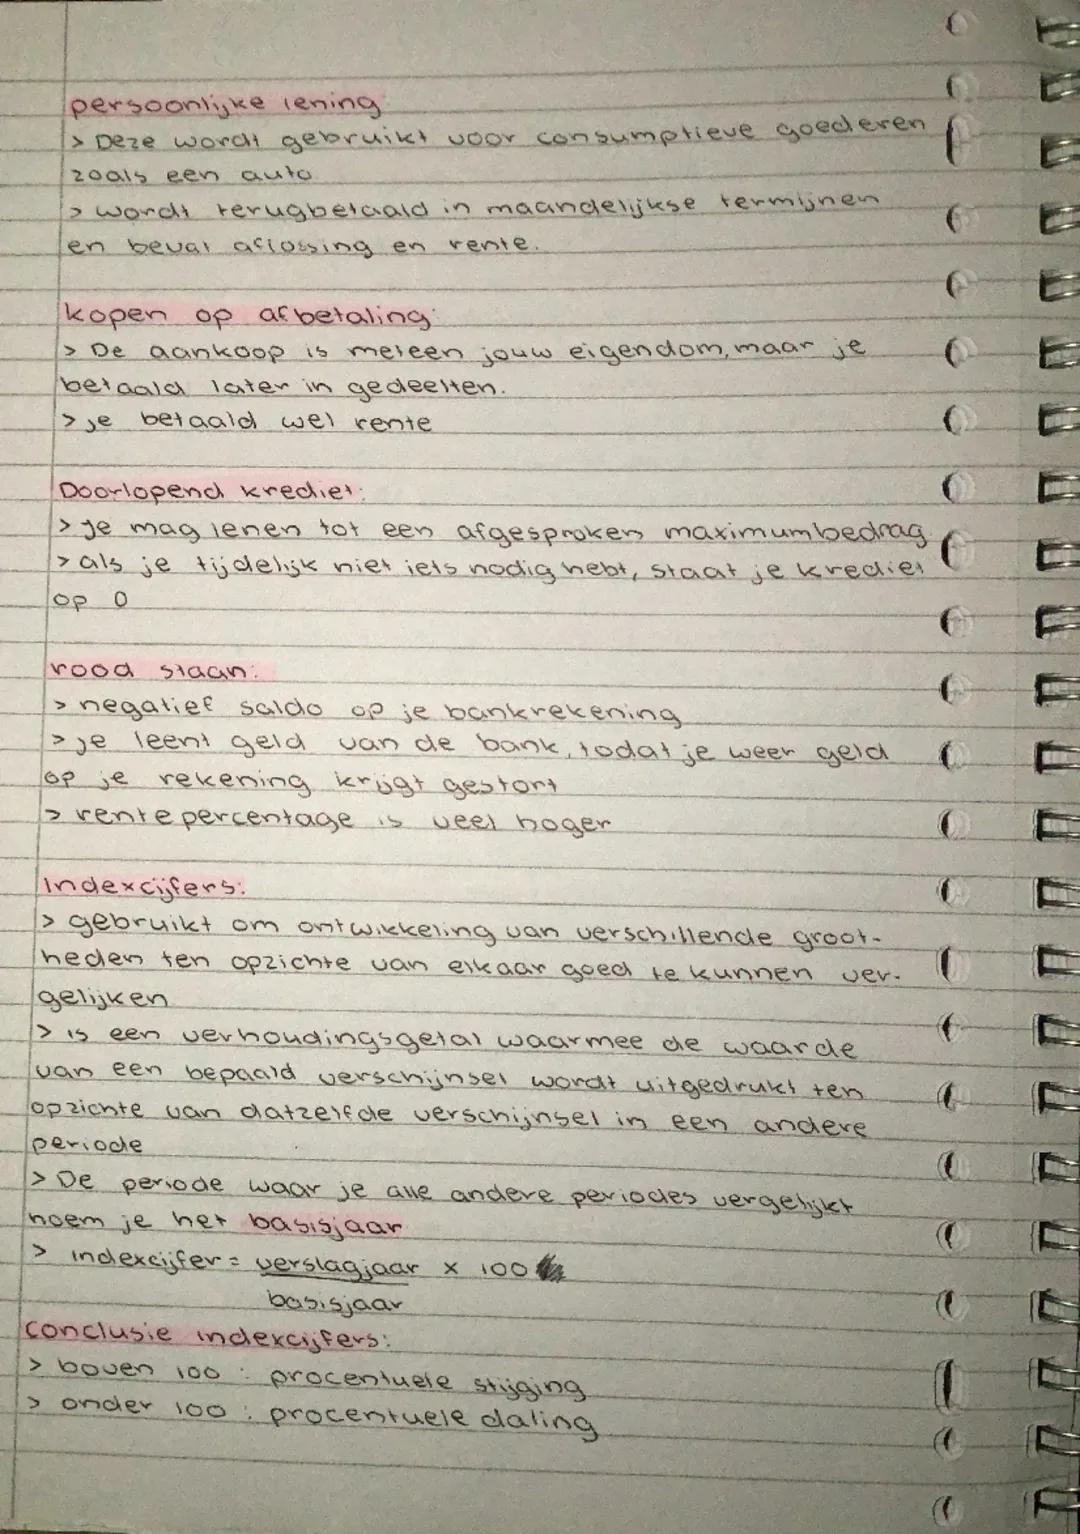 persoonlijke lening:
> Deze wordt gebruikt voor consumptieve goederen
zoals een auto
> wordt terugbetaald in maandelijkse termijnen
en bevat aflossing en rente.
kopen op afbetaling:
> De aankoop is meteen jouw eigendom, maar je
betaald later in gedeelten.
> je betaald wel rente
Doorlopend krediet:
> je mag lenen tot een afgesproken maximumbedrag
> als je tijdelijk niet iets nodig hebt, staat je krediet
op 0
rood staan:
> negatief saldo op je bankrekening
> je leent geld van de bank, todat je weer geld
op je rekening krijgt gestort
> rentepercentage is veel hoger
Indexcijfers:
> gebruikt om ontwikkeling van verschillende groot-
heden ten opzichte van elkaar goed te kunnen ver-
gelijken
> is een verhoudingsgetal waarmee de waarde
van een bepaald verschijnsel wordt uitgedrukt ten
opzichte van datzelfde verschijnsel in een andere
periode
> De periode waar je alle andere periodes vergelijkt
noem je het basisjaar
> indexcijfer = verslagjaar x 100
basisjaar
conclusie indexcijfers:
> boven 100 : procentuele stijging
> onder 100 : procentuele daling